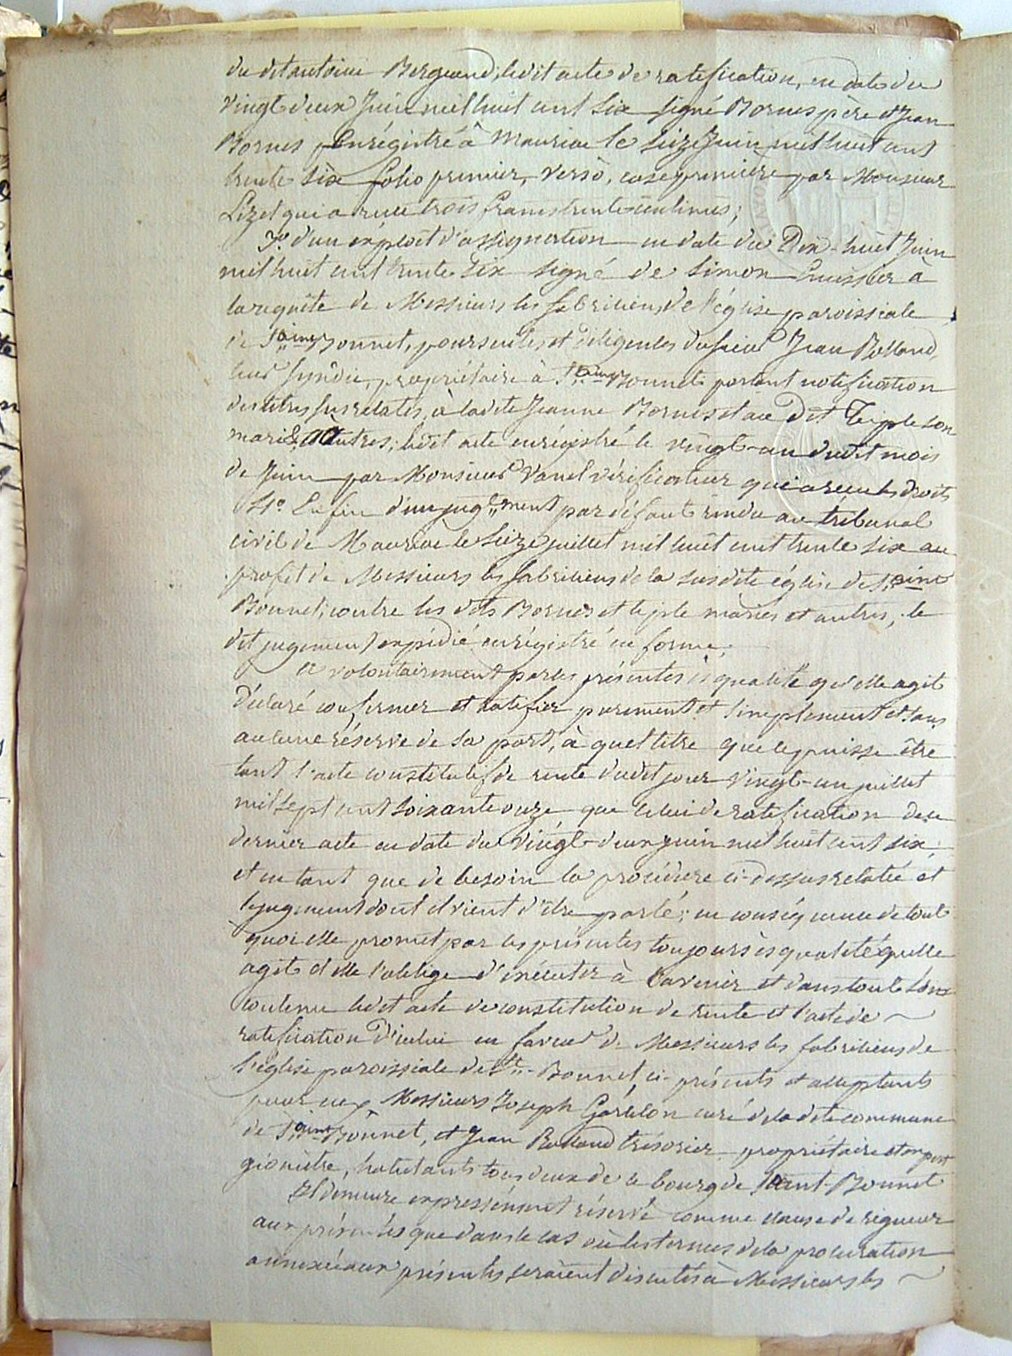 du dit antoine Bergeaud, ledit acte de ratification, en date du
vingt deux Juin mil huit cent six signé Bornes père et Jean
Bornes Enrégistré à Mauriac le seize Juin mil huit cent
trente six folio premier, verso, case première par Monsieur
Lizet qui a reçu trois francs trente centimes;
3.° d'un exploit d'assignation en date du Dix-huit Juin
mil huit cent trente six signé de Simon huissier à
la requête de Messieurs les fabriciens de l'église paroissiale
de Saint Bonnet, poursuites et diligences du sieur Jean Rolland,
leur Syndic, propriétaire à Saint Bonnet portant notification
des titres susrelatés, à ladite Jeanne Bornes et au dit Teiple son
mari et autres; ledit acte enrégistré le vingt-un dudit mois
de Juin par Monsieur Vanel vérificateur qui a reçu les droits
4.° Enfin d'un jugement par défaut rendu au tribunal
civil de Mauriac le seize juillet mil huit cent trente six au
profit de Messieurs les fabriciens de la susdite église de Saint
Bonnet, contre les dits Bornes et teiple mariés et autres, le
dit jugement expédié enrégistré en forme;
A volontairement par les présentes ès qualité qu'elle agit
Déclaré confirmer et ratifier purement et simplement et sans
aucune réserve de sa part, à quel titre que ce puisse être
tant l'acte constitutif de rente dudit jour vingt-un juillet
mil sept cent soixante onze que celui de ratification de ce
dernier acte en date du vingt-deux juin mil huit cent six;
et en tant que de besoin la procédure ci-dessus relatée et
le jugement dont il vient d'être parlé; en conséquence de tout
quoi elle promet par les présentes toujours ès qualité qu'elle
agit et elle l'oblige d'exécuter à l'avenir et dans tout son
contenu ledit acte de constitution de rente et l'acte de
ratification d'icelui en faveur de Messieurs les fabriciens de
l'église paroissiale de St.-Bonnet, ci-présents et acceptants
pour eux Messieurs Joseph curé de la dite commune
de Saint-Bonnet, et Jean Rolland trésorier propriétaire et
géomètre, habitants tous deux de ce bourg de Saint-Bonnet
Il demeure expressément réservé comme clause de rigueur
aux présentes que dans le cas où les termes de la procuration
annexée aux présentes seraient discutés à Messieurs les